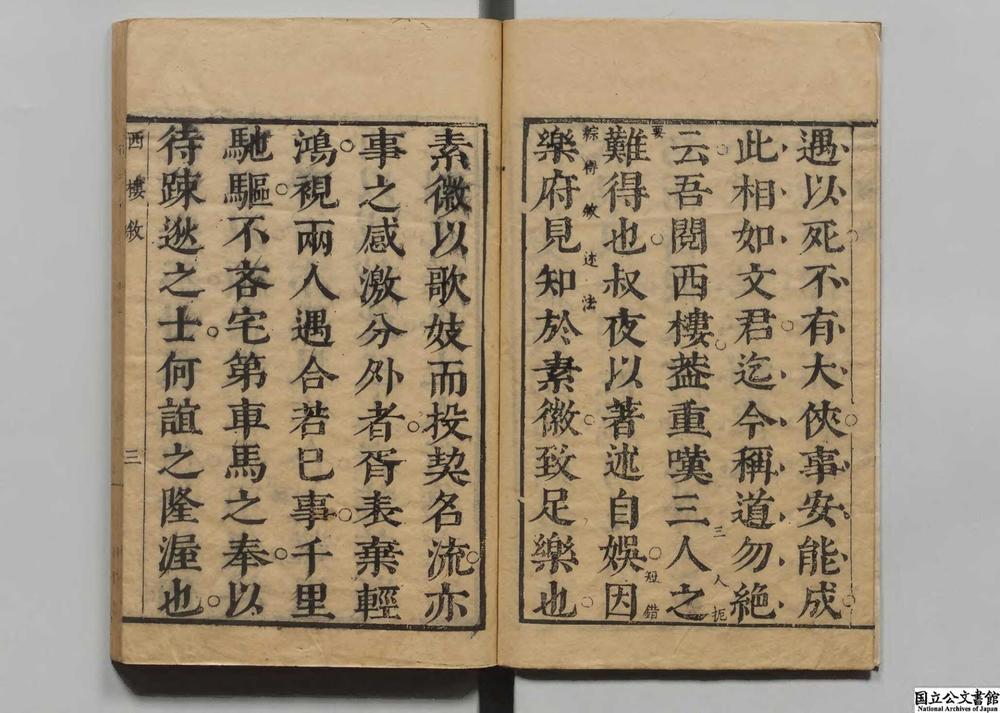 遇以死不有大俠事安能成
此相如文君迄今稱道勿絶
云吾閱西樓葢重嘆三人之
三人扼要
難得也叔夜以著述自娯因
短錯綜得敘述法
樂府見知於素徽致足樂也
素徽以歌妓而投契名流亦
事之感激分外者胥表棄輕
鴻視兩人遇合若巳事千里
馳驅不吝宅第車馬之奉以
待踈逖之士何誼之隆渥也
西樓敘
三
国立公文書館
National Archives of Japan